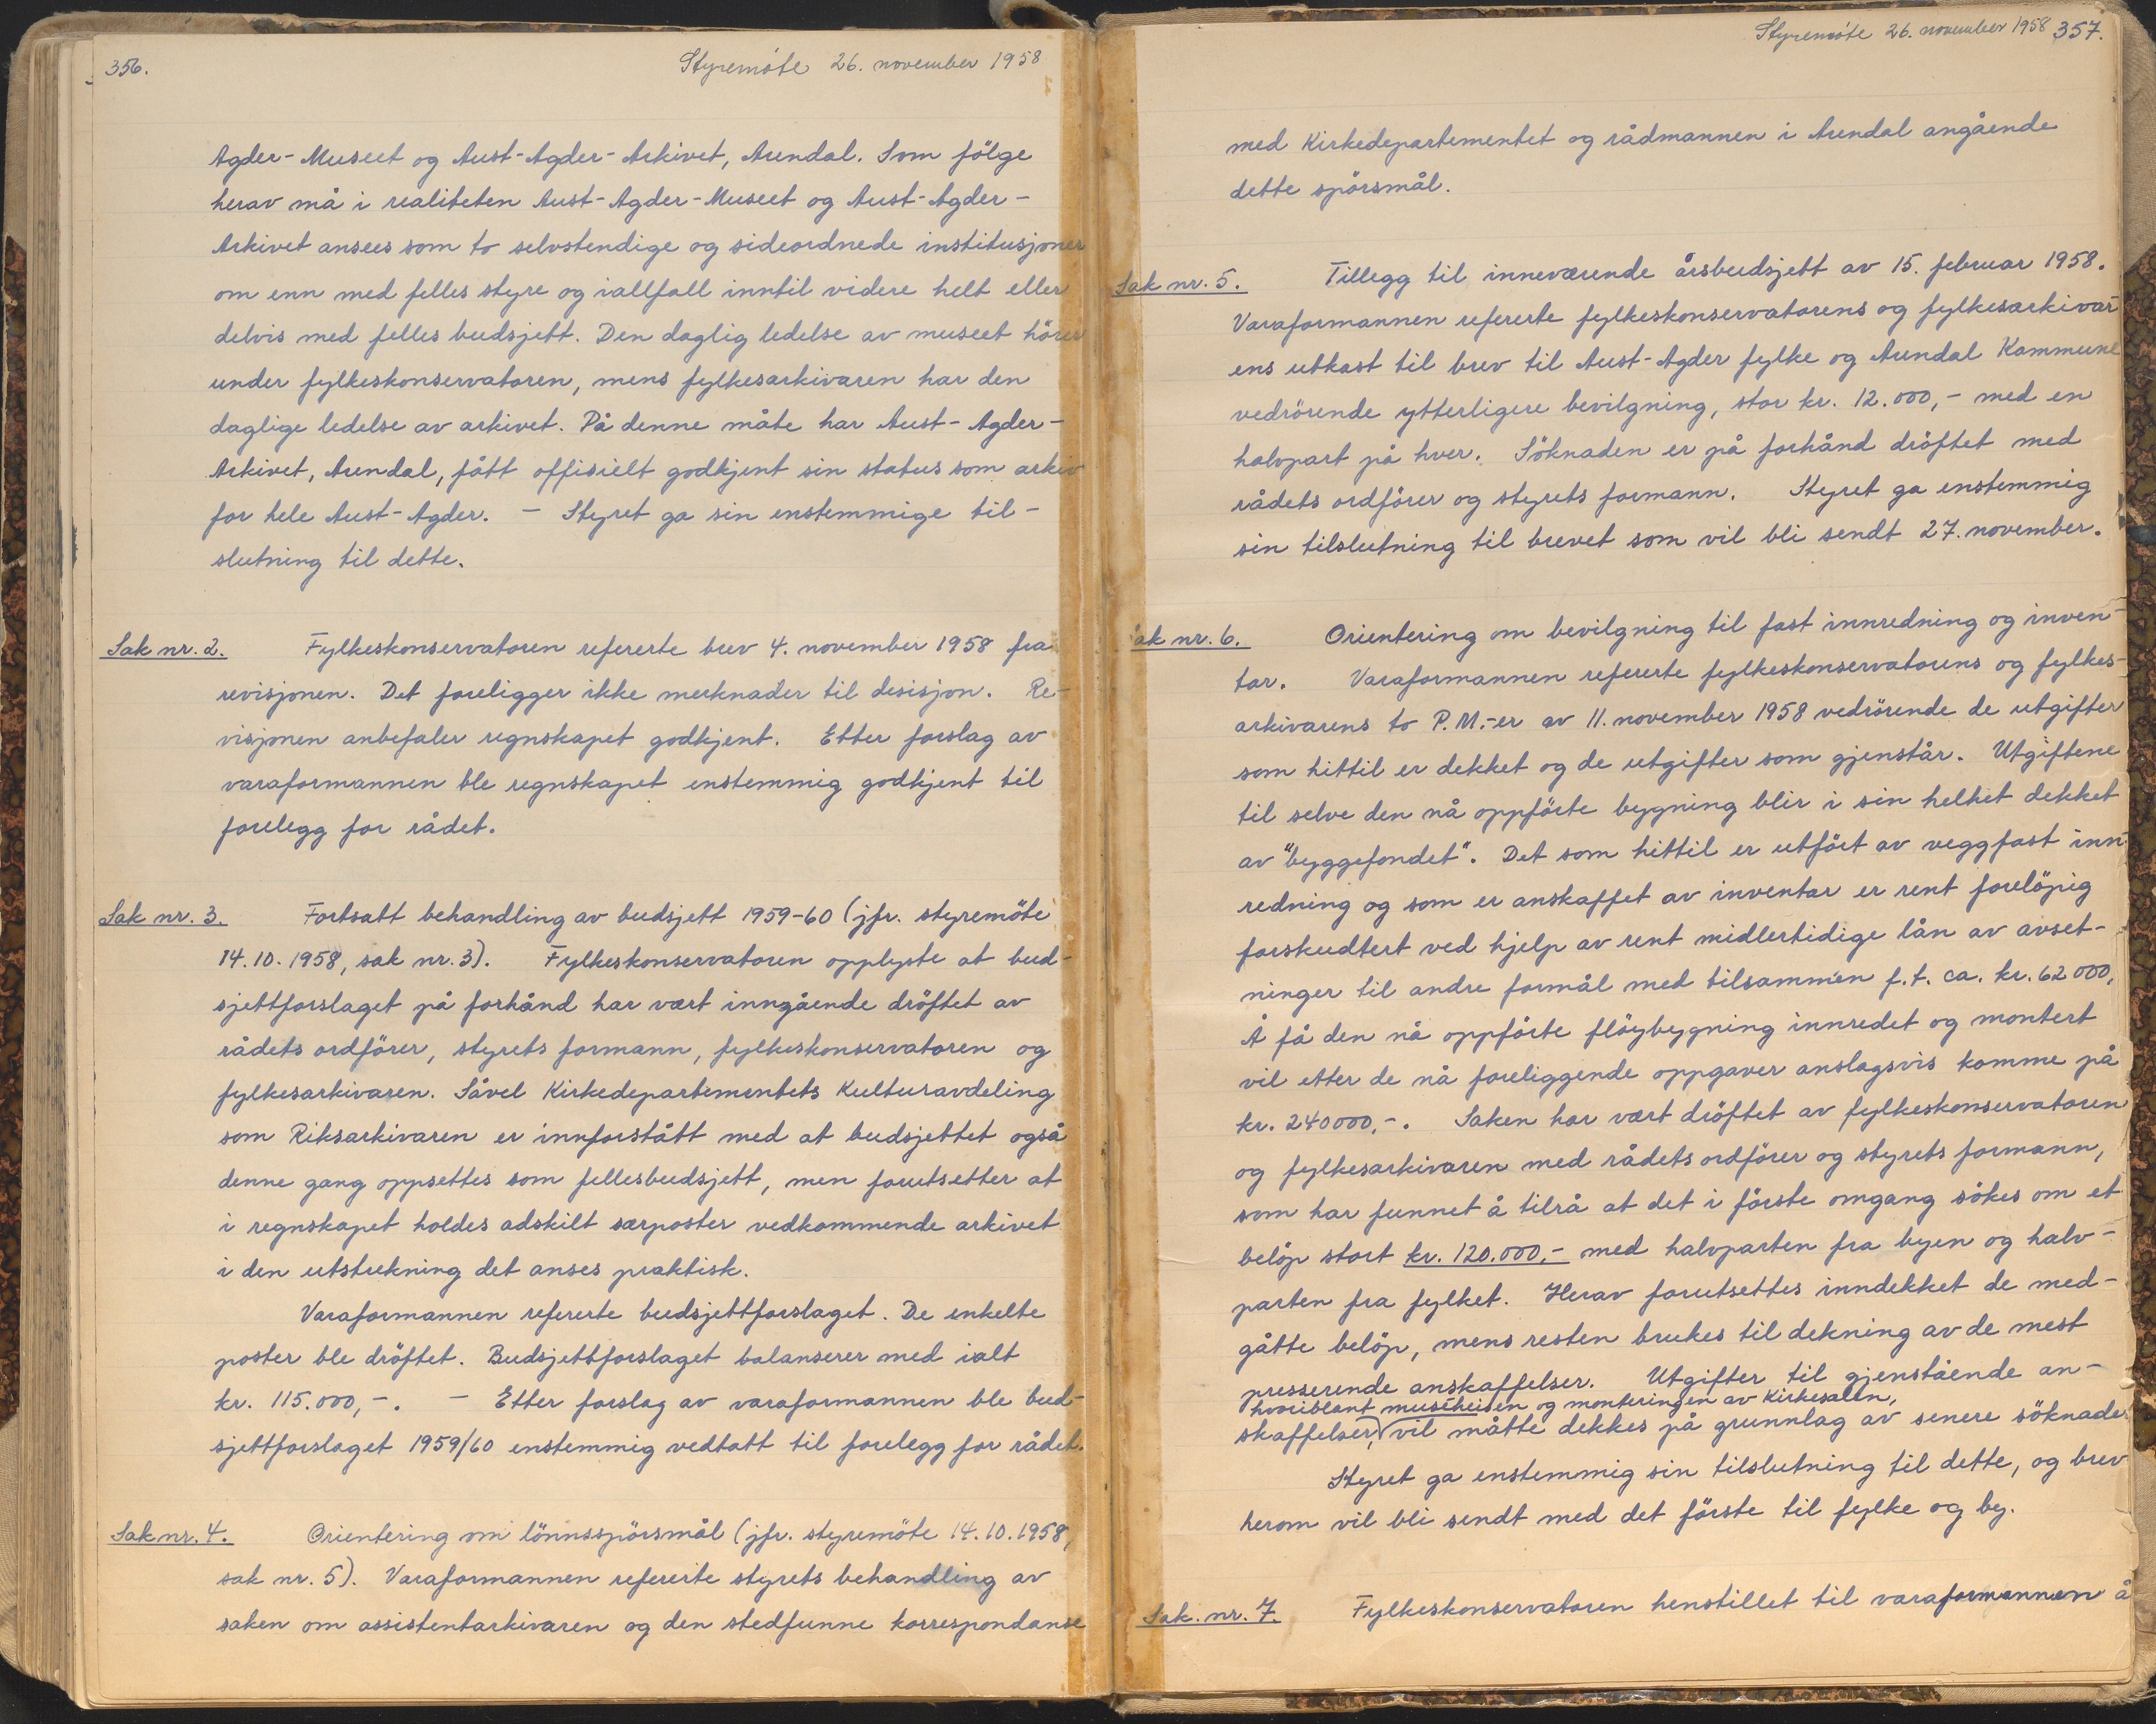 356.
Styremöte 26. november 1958
Agder-Museet og Aust-Agder-Arkivet, Arendal. Som fölge
herav må i realiteten Aust-Agder-Museet og Aust-Agder-
Arkivet ansees som to selvstendige og sideordnede institusjoner
om enn med felles styre og iallfall inntil videre helt eller
delvis med felles budsjett. Den daglig ledelse av museet hörer
under fylkeskonservatoren, mens fylkesarkivaren har den
daglige ledelse av arkivet. På denne måte har Aust-Agder-
Arkivet, Arendal, fått offisielt godkjent sin status som arkiv
for hele Aust-Agder. - Styret ga sin enstemmige til-
slutning til dette.
Sak nr. 2. Fylkeskonservatoren refererte brev 4. november 1958 fra
revisjonen. Det foreligger ikke merknader til desisjon. Re-
visjonen anbefaler regnskapet godkjent. Etter forslag av
varaformannen ble regnskapet enstemmig godkjent til
forelegg for rådet.
Sak nr. 3. Fortsatt behandling av budsjett 1959-60 (jfr. styremöte
14.10.1958, sak nr. 3). Fylkeskonservatoren opplyste at bud-
sjettforslaget på forhånd har vært inngående dröftet av
rådets ordförer, styrets formann, fylkeskonservatoren og
fylkesarkivaren. Såvel Kirkedepartementets Kulturavdeling
som Riksarkivaren er innforstått med at budsjettet også
denne gang oppsettes som fellesbudsjett, men forutsetter at
i regnskapet holdes adskilt særposter vedkommende arkivet
i den utstrekning det anses praktisk.
Varaformannen refererte budsjettforslaget. De enkelte
poster ble dröftet. Budsjettforslaget balanserer med ialt
kr. 115.000,-. - Etter forslag av varaformannen ble bud-
sjettforslaget 1959/60 enstemmig vedtatt til forelegg for rådet.
Sak nr. 4. Orientering om lönnsspörsmål (jfr. styremöte 14.10.1958,
sak nr. 5). Varaformannen refererte styrets behandling av
saken om assistentarkivaren og den stedfunne korrespondanse
Styremöte 26. november 1958 357.
med Kirkedepartementet og rådmannen i Arendal angående
dette spörsmål.
Sak nr. 5. Tillegg til inneværende årsbudsjett av 15. februar 1958.
Varaformannen refererte fylkeskonservatorens og fylkesarkivar-
ens utkast til brev til Aust-Agder fylke og Arendal Kommune
vedrörende ytterligere bevilgning, stor kr. 12.000,- med en
halvpart på hver. Söknaden er på forhånd dröftet med
rådets ordförer og styrets formann. Styret ga enstemmig
sin tilslutning til brevet som vil bli sendt 27. november.
ak nr. 6. Orientering om bevilgning til fast innredning og inven-
tar. Varaformannen refererte fylkeskonservatorens og fylkes-
arkivarens to P.M.-er av 11. november 1958 vedrörende de utgifter
som hittil er dekket og de utgifter som gjenstår. Utgiftene
til selve den nå oppförte bygning blir i sin helhet dekket
av "byggefondet". Det som hittil er utfört av veggfast inn-
redning og som er anskaffet av inventar er rent forelöpig
forskudtert ved hjelp av rent midlertidige lån av avset-
ninger til andre formål med tilsammen f.t. ca. kr. 62 000,
Å få den nå oppförte flöybygning innredet og montert
vil etter de nå foreliggende oppgaver anslagsvis komme på
kr. 240000,-. Saken har vært dröftet av fylkeskonservatoren
og fylkesarkivaren med rådets ordförer og styrets formann,
som har funnet å tilrå at det i förste omgang sökes om et
belöp stort kr. 120.000,- med halvparten fra byen og halv-
parten fra fylket. Herav forutsettes inndekket de med-
gåtte belöp, mens resten brukes til dekning av de mest
presserende anskaffelser. Utgifter til gjenstående an-
hvoriblant museheisen og monteringen av Kirkesalen,
skaffelser, vil måtte dekkes på grunnlag av senere söknader
Styret ga enstemmig sin tilslutning til dette, og brev
herom vil bli sendt med det förste til fylke og by.
Sak. nr. 7. Fylkeskonservatoren henstillet til varaformannen å